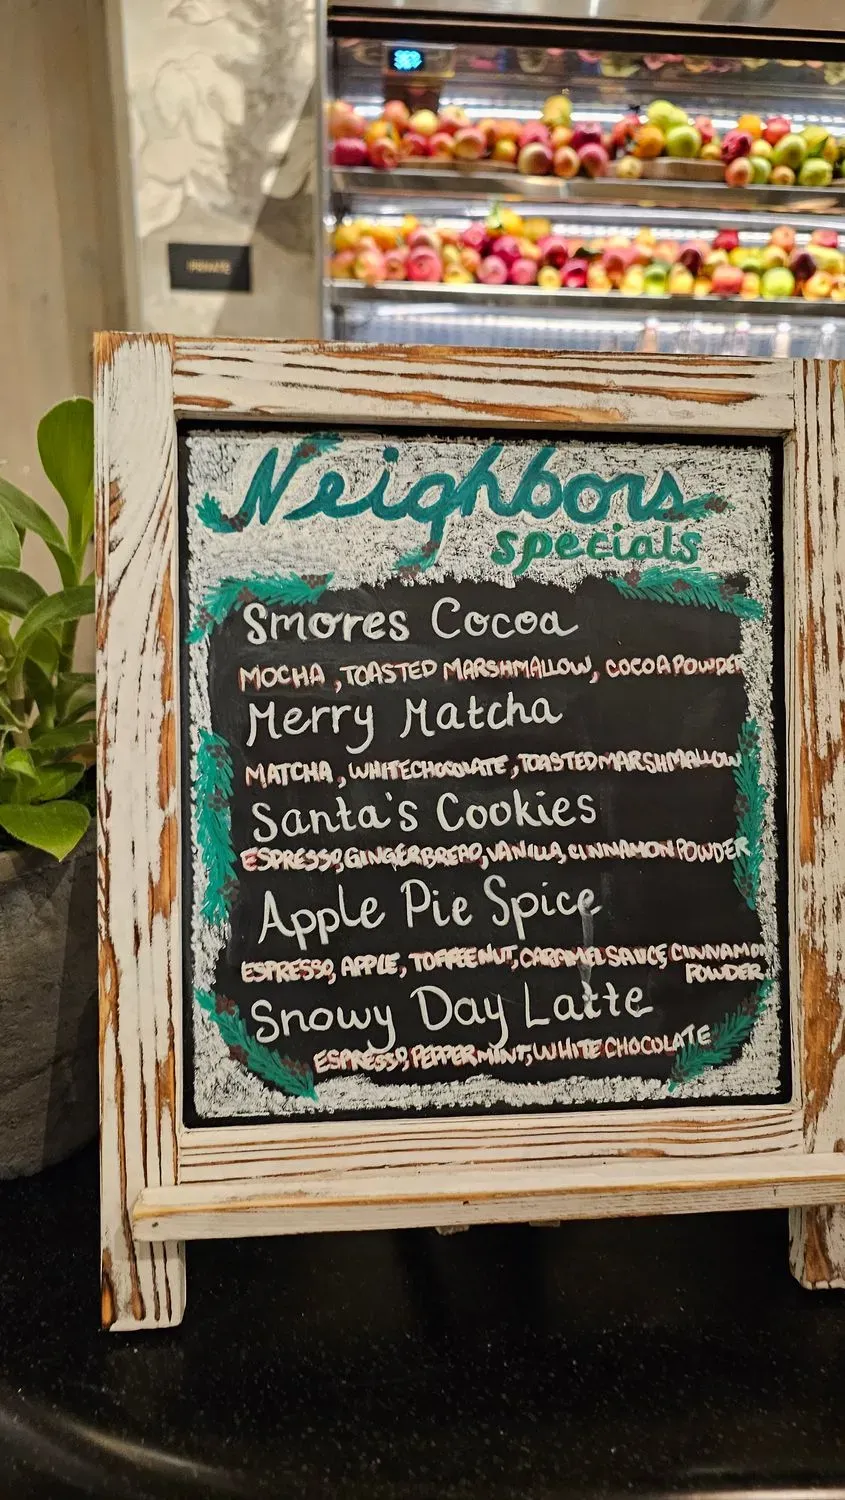 PRIVATE
Neighbors
specials
Smores Cocoa
MOCHA, TOASTED MARSHMALLOW, COCOA POWDER
Merry Matcha
MATCHA, WHITE CHOCOLATE, TOASTED MARSHMALLOW
Santa's Cookies
ESPRESSO, GINGERBREAD, VANILLA, CINNAMON POWDER
Apple Pie Spice
ESPRESSO, APPLE, TOFFEENUT, CARAMEL SAUCE, CINNAMON
POWDER
Snowy Day Latte
ESPRESSO, PEPPERMINT, WHITE CHOCOLATE